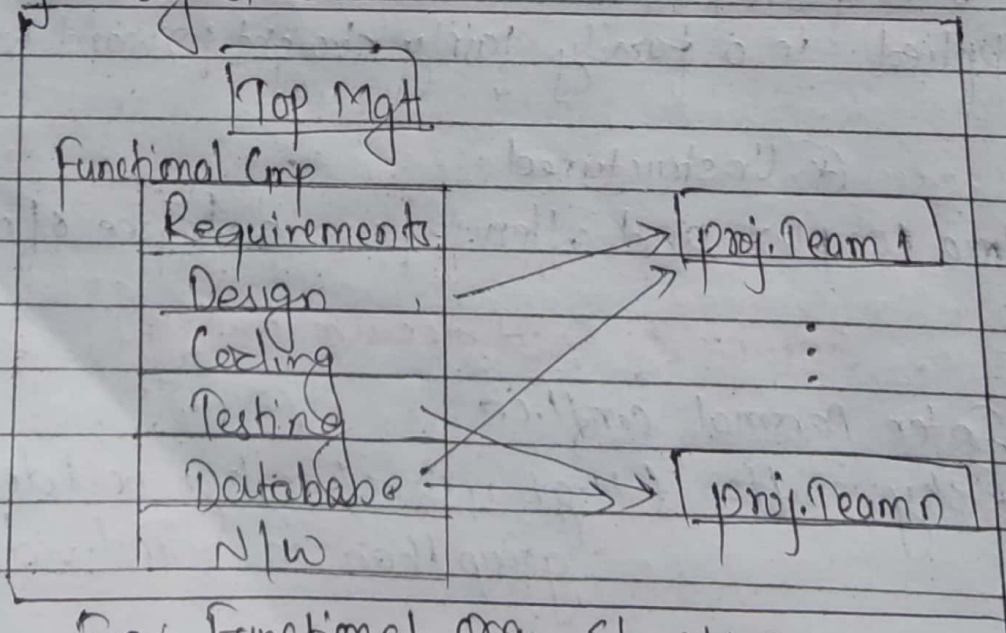 Top Mgt
Functional Cmp
Requirements
Design
Coding
Testing
Datababe
N/W
proj. Team 1
proj. Team n
Functional